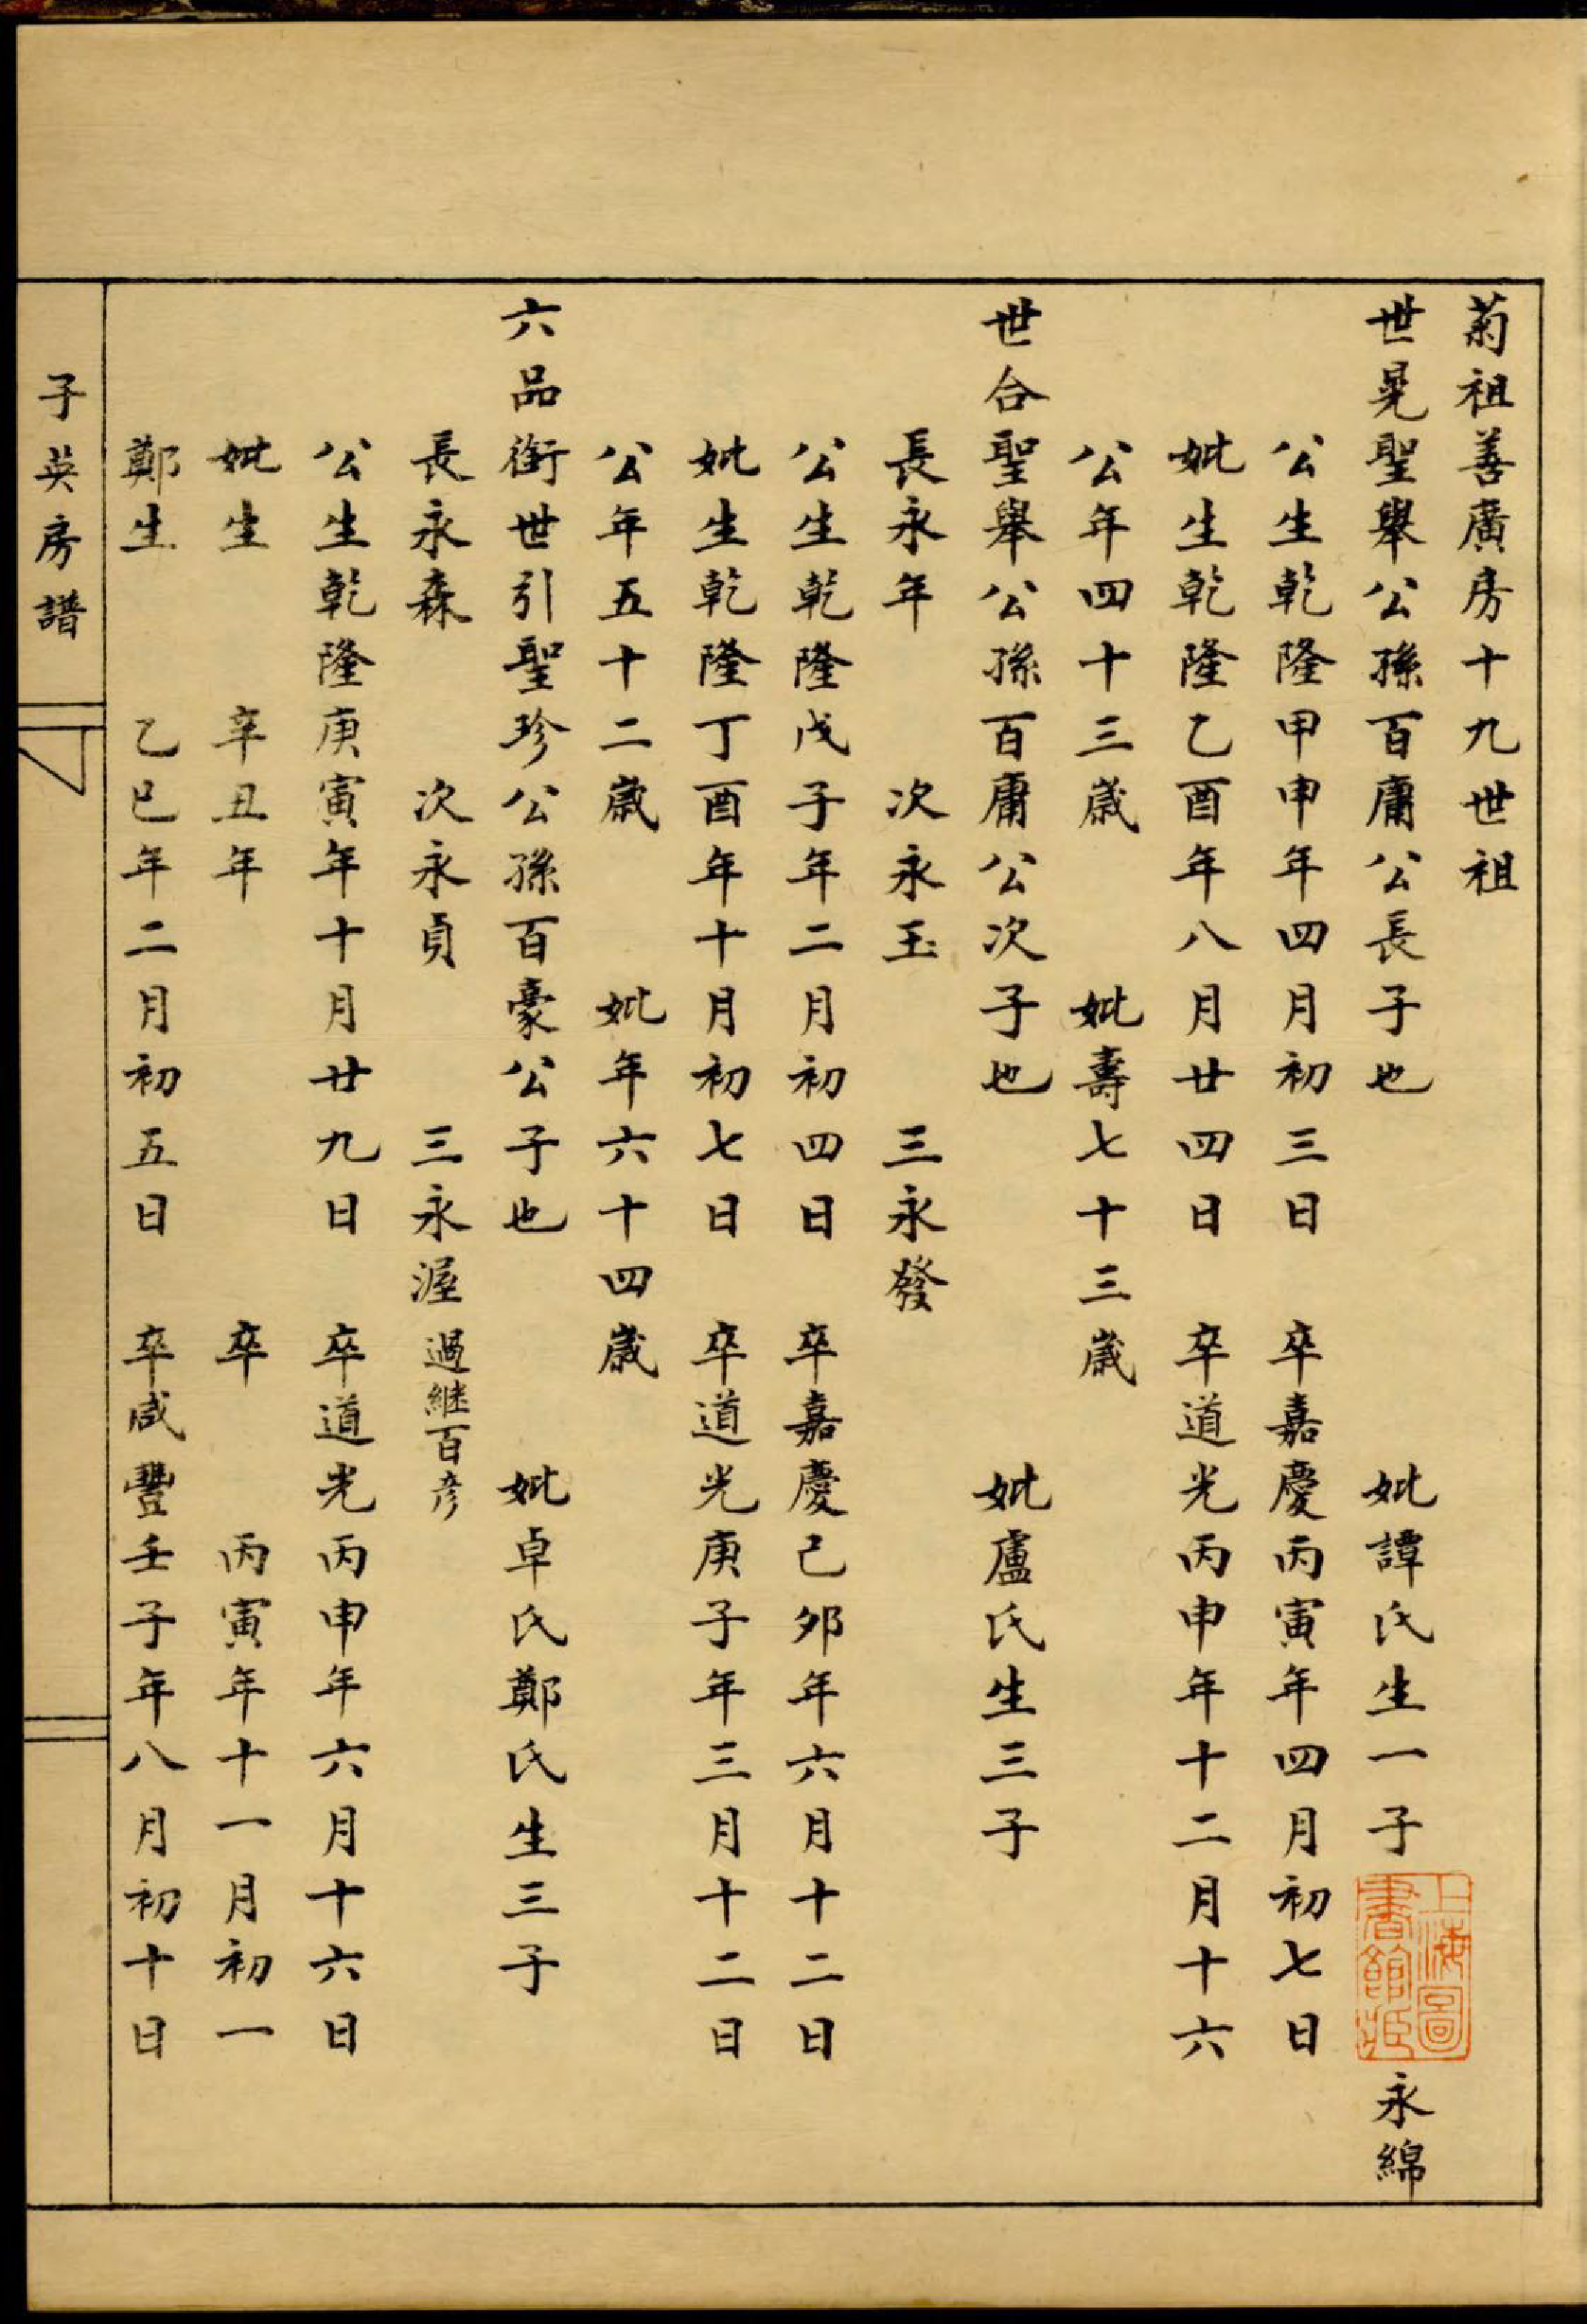 菊祖善廣房十九世祖
世晃聖舉公孫百庸公長子也 妣譚氏生一子 永綿
公生乾隆甲申年四月初三日 卒嘉慶丙寅年四月初七日
妣生乾隆乙酉年八月廿四日 卒道光丙申年十二月十六
公年四十三歲 妣壽七十三歲
世合聖舉公孫百庸公次子也 妣盧氏生三子
長永年 次永玉 三永發
公生乾隆戊子年二月初四日 卒嘉慶己卯年六月十二日
妣生乾隆丁酉年十月初七日 卒道光庚子年三月十二日
公年五十二歲 妣年六十四歲
六品銜世引聖珍公孫百豪公子也 妣卓氏鄭氏生三子
長永森 次永貞 三永渥 過継百彥
公生乾隆庚寅年十月廿九日 卒道光丙申年六月十六日
妣生 辛丑年 卒 丙寅年十一月初一
鄭生 乙巳年二月初五日 卒咸豐壬子年八月初十日
子英房譜
上海圖
書館藏